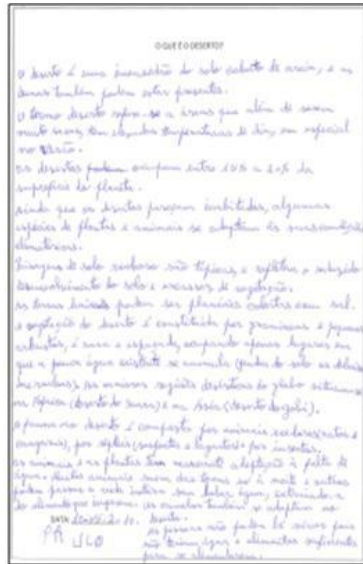 O QUE É O DESERTO?
O deserto é uma imensidão do solo coberto de areia, e as
dunas também podem estar presentes.
O termo deserto refere-se a áreas que além de serem
muito secas, tem elevadas temperaturas de dia, em especial
no verão.
os desertos ocupam entre a 20% da
superfície do planeta.
Ainda que os desertos pareçam inabitados, algumas
espécies de plantas e animais se adaptam às suas condições
climáticas.
Paisagens de solo rochoso são típicas, e refletem o reduzido
desenvolvimento do solo e escassez de vegetação.
As terras baixas podem ser planícies cobertas com sal.
A vegetação do deserto é constituída por gramíneas e pequenos
arbustos, é rara e espaçada, ocupando apenas lugares em
que a pouca água existente se acumula (fendas do solo ou debaixo
das rochas). As maiores regiões desérticas do globo situam-se
na África (deserto do saara) e na Ásia (deserto de gobi).
A fauna no deserto é composta por animais roedores (ratos e
cangurus), por répteis (serpentes e lagartos) e por insetos.
os animais e as plantas tem adaptação à falta de
água. Muitos animais saem das tocas só à noite e outros
podem passar a vida inteira sem beber água, extraindo-a
do alimento que ingerem. os também se adaptam ao
DATA deserto.
As pessoas não podem lá viver para
não terem água e alimentos suficientes
para se alimentarem.